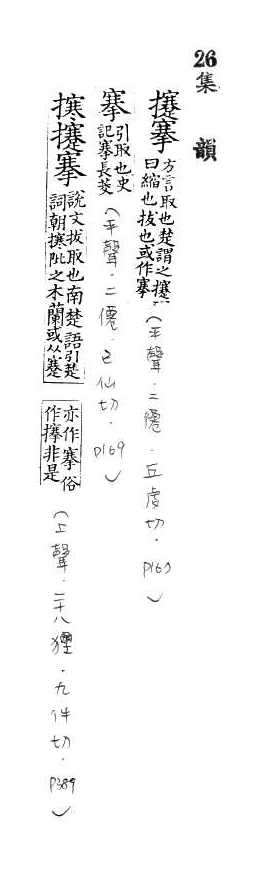 26 集韻
攓搴方言取也楚謂之攓一曰縮也拔也或作搴(平聲.二僊.丘虔切.p169)
搴引取也史記搴長茭(平聲.二僊.己仙切.p169)
㩃攓搴說文拔取也南楚語引楚詞朝㩃阰之木蘭或从蹇亦作搴俗作攐非是(上聲.二十八獮.九件切.p389)